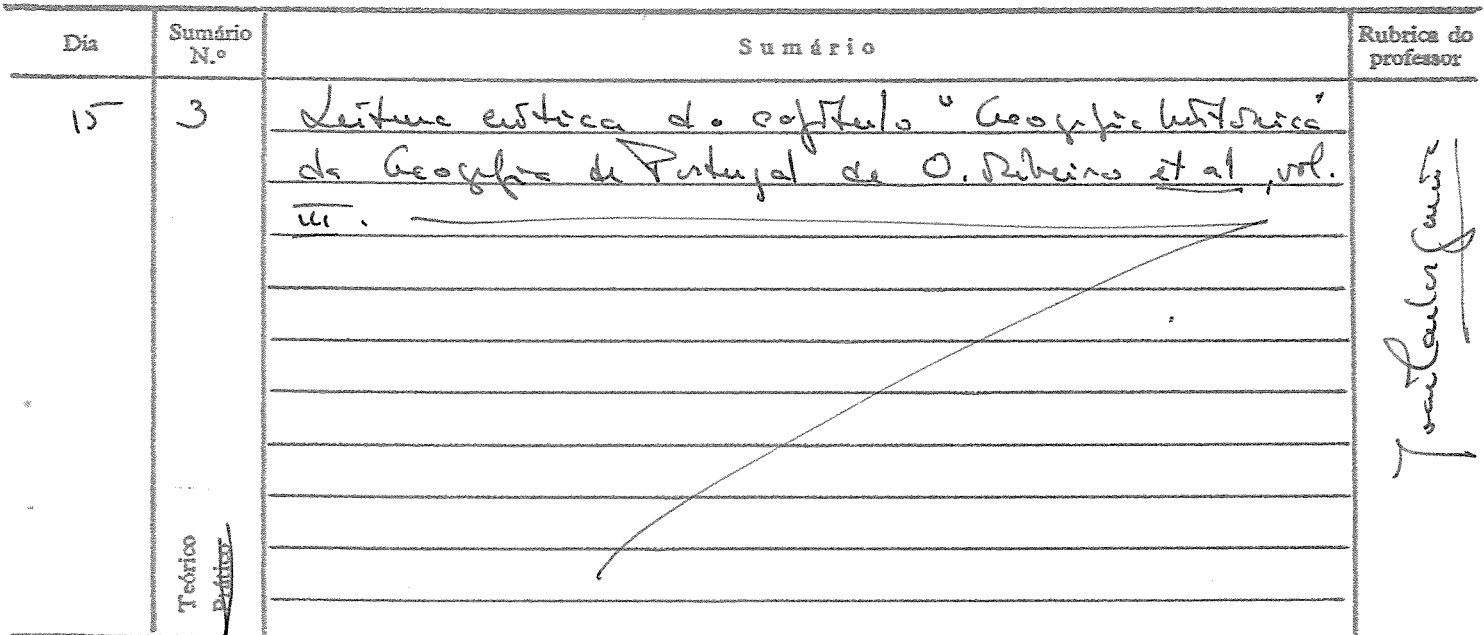 Dia
Sumário N.º
Sumário
Rubrica do professor
15
3
Leitura crítica do capítulo "Geografia histórica"
da Geografia de Portugal de O. Ribeiro et al, vol.
III.
Teórico
Prático
João Carlos Garcia